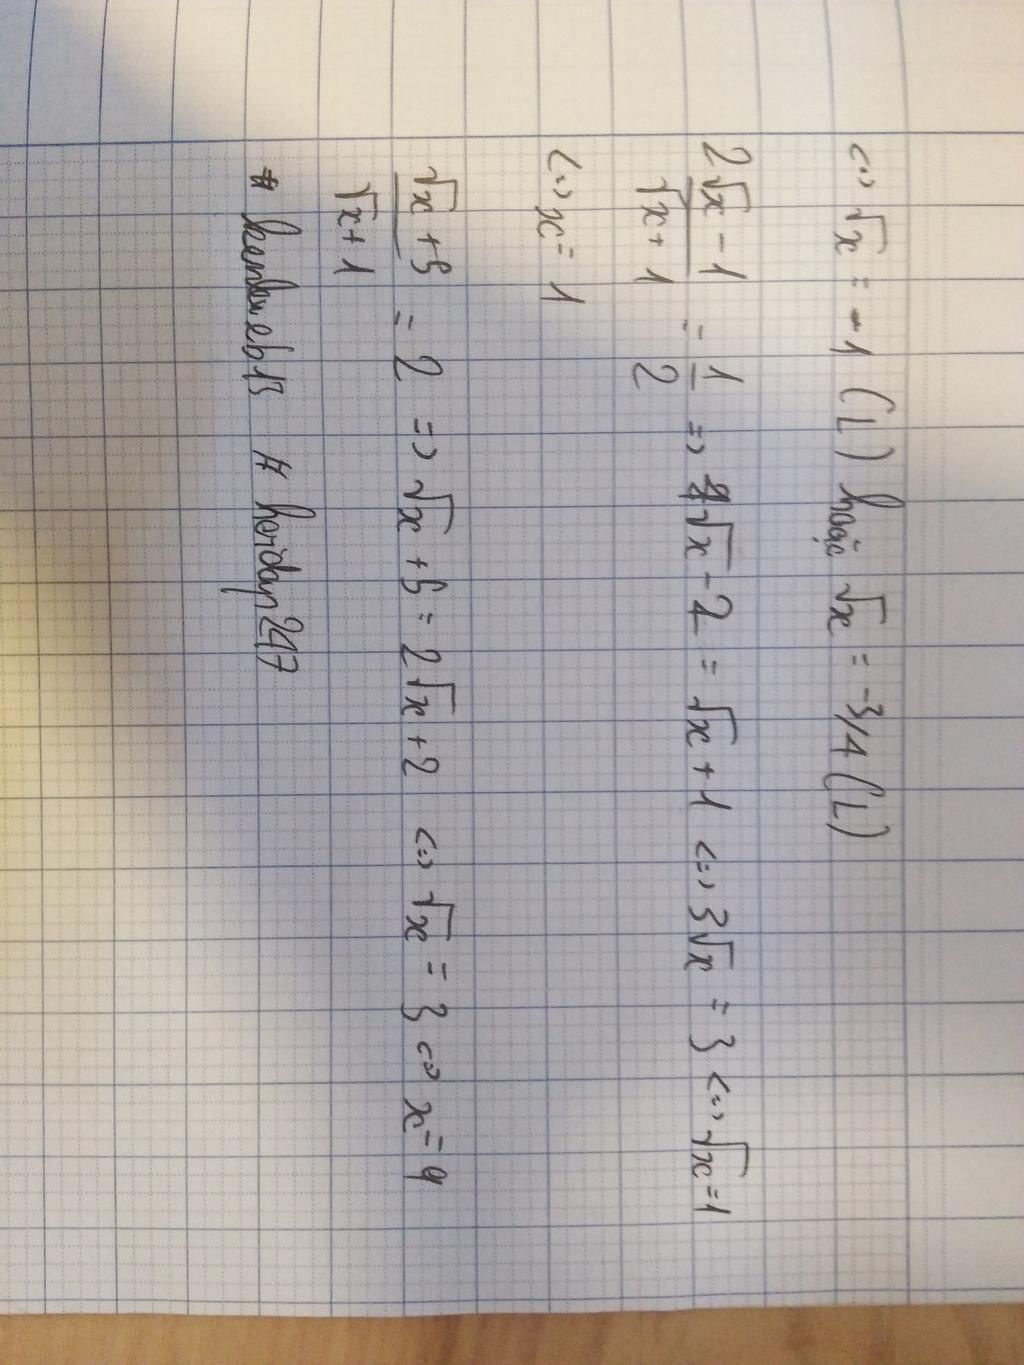 <=> √x = -1 (L) hoặc √x = -3/4 (L)
2√x - 1 / √x + 1 = 1/2 => 4√x - 2 = √x + 1 <=> 3√x = 3 <=> √x = 1
<=> x = 1
√x + 5 / √x + 1 = 2 => √x + 5 = 2√x + 2 <=> √x = 3 <=> x = 9
# hoidap247